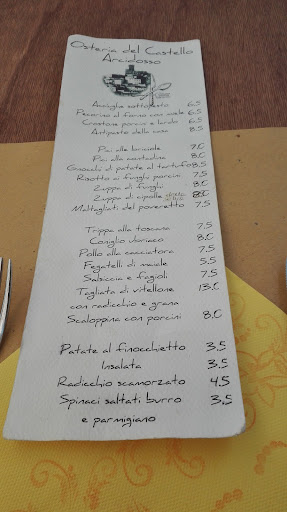 Osteria del Castello
Arcidosso
Acciughe sottopesto 6.5
Pecorino al forno con miele 6.5
Crostone porcini e lardo 6.5
Antipasto della casa 8.5
Pici alle briciole 7.5
Pici alla contadina 8.0
Gnocchi di patate al tartufo 8.5
Risotto ai funghi porcini 7.5
Zuppa di funghi 7.5
Zuppa di cipolle 8.0
Maltagliati del poveretto 7.5
Trippa alla toscana 7.5
Coniglio ubriaco 8.0
Pollo alla cacciatora 7.5
Fegatelli di maiale 5.5
Salsiccia e fagioli 7.5
Tagliata di vitellone 13.0
con radicchio e grana
Scaloppina con porcini 8.0
Patate al finocchietto 3.5
Insalata 3.5
Radicchio scamorzato 4.5
Spinaci saltati burro 3.5
e parmigiano